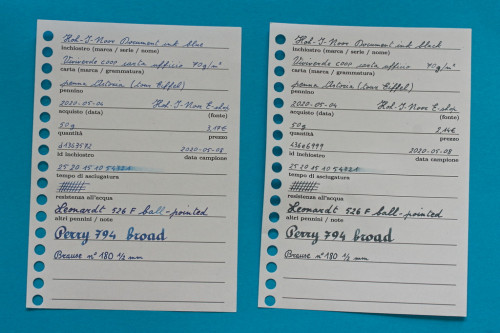 Koh-I-Noor Document ink blue
inchiostro (marca / serie / nome)
Vivoverde coop carta officio 70g/m²
carta (marca / grammatura)
penna Astoria (tour Eiffel)
pennino
2020-05-04 Koh-I-Noor E-shop
acquisto (data) (fonte)
50g
quantità prezzo
2020-05-08
id inchiostro data campione
25 20 15 10 5 4 3 2 1
tempo di asciugatura
resistenza all'acqua
Leonardt 526 F ball-pointed
altri pennini / note
Perry 794 broad
Brause n° 180 ½ mm
Koh-I-Noor Document ink black
inchiostro (marca / serie / nome)
Vivoverde coop carta officio 70g/m²
carta (marca / grammatura)
penna Astoria (tour Eiffel)
pennino
2020-05-04 Koh-I-Noor E-shop
acquisto (data) (fonte)
50g 2,14€
quantità prezzo
2020-05-08
id inchiostro data campione
25 20 15 10 5 4 3 2 1
tempo di asciugatura
resistenza all'acqua
Leonardt 526 F ball-pointed
altri pennini / note
Perry 794 broad
Brause n° 180 ½ mm